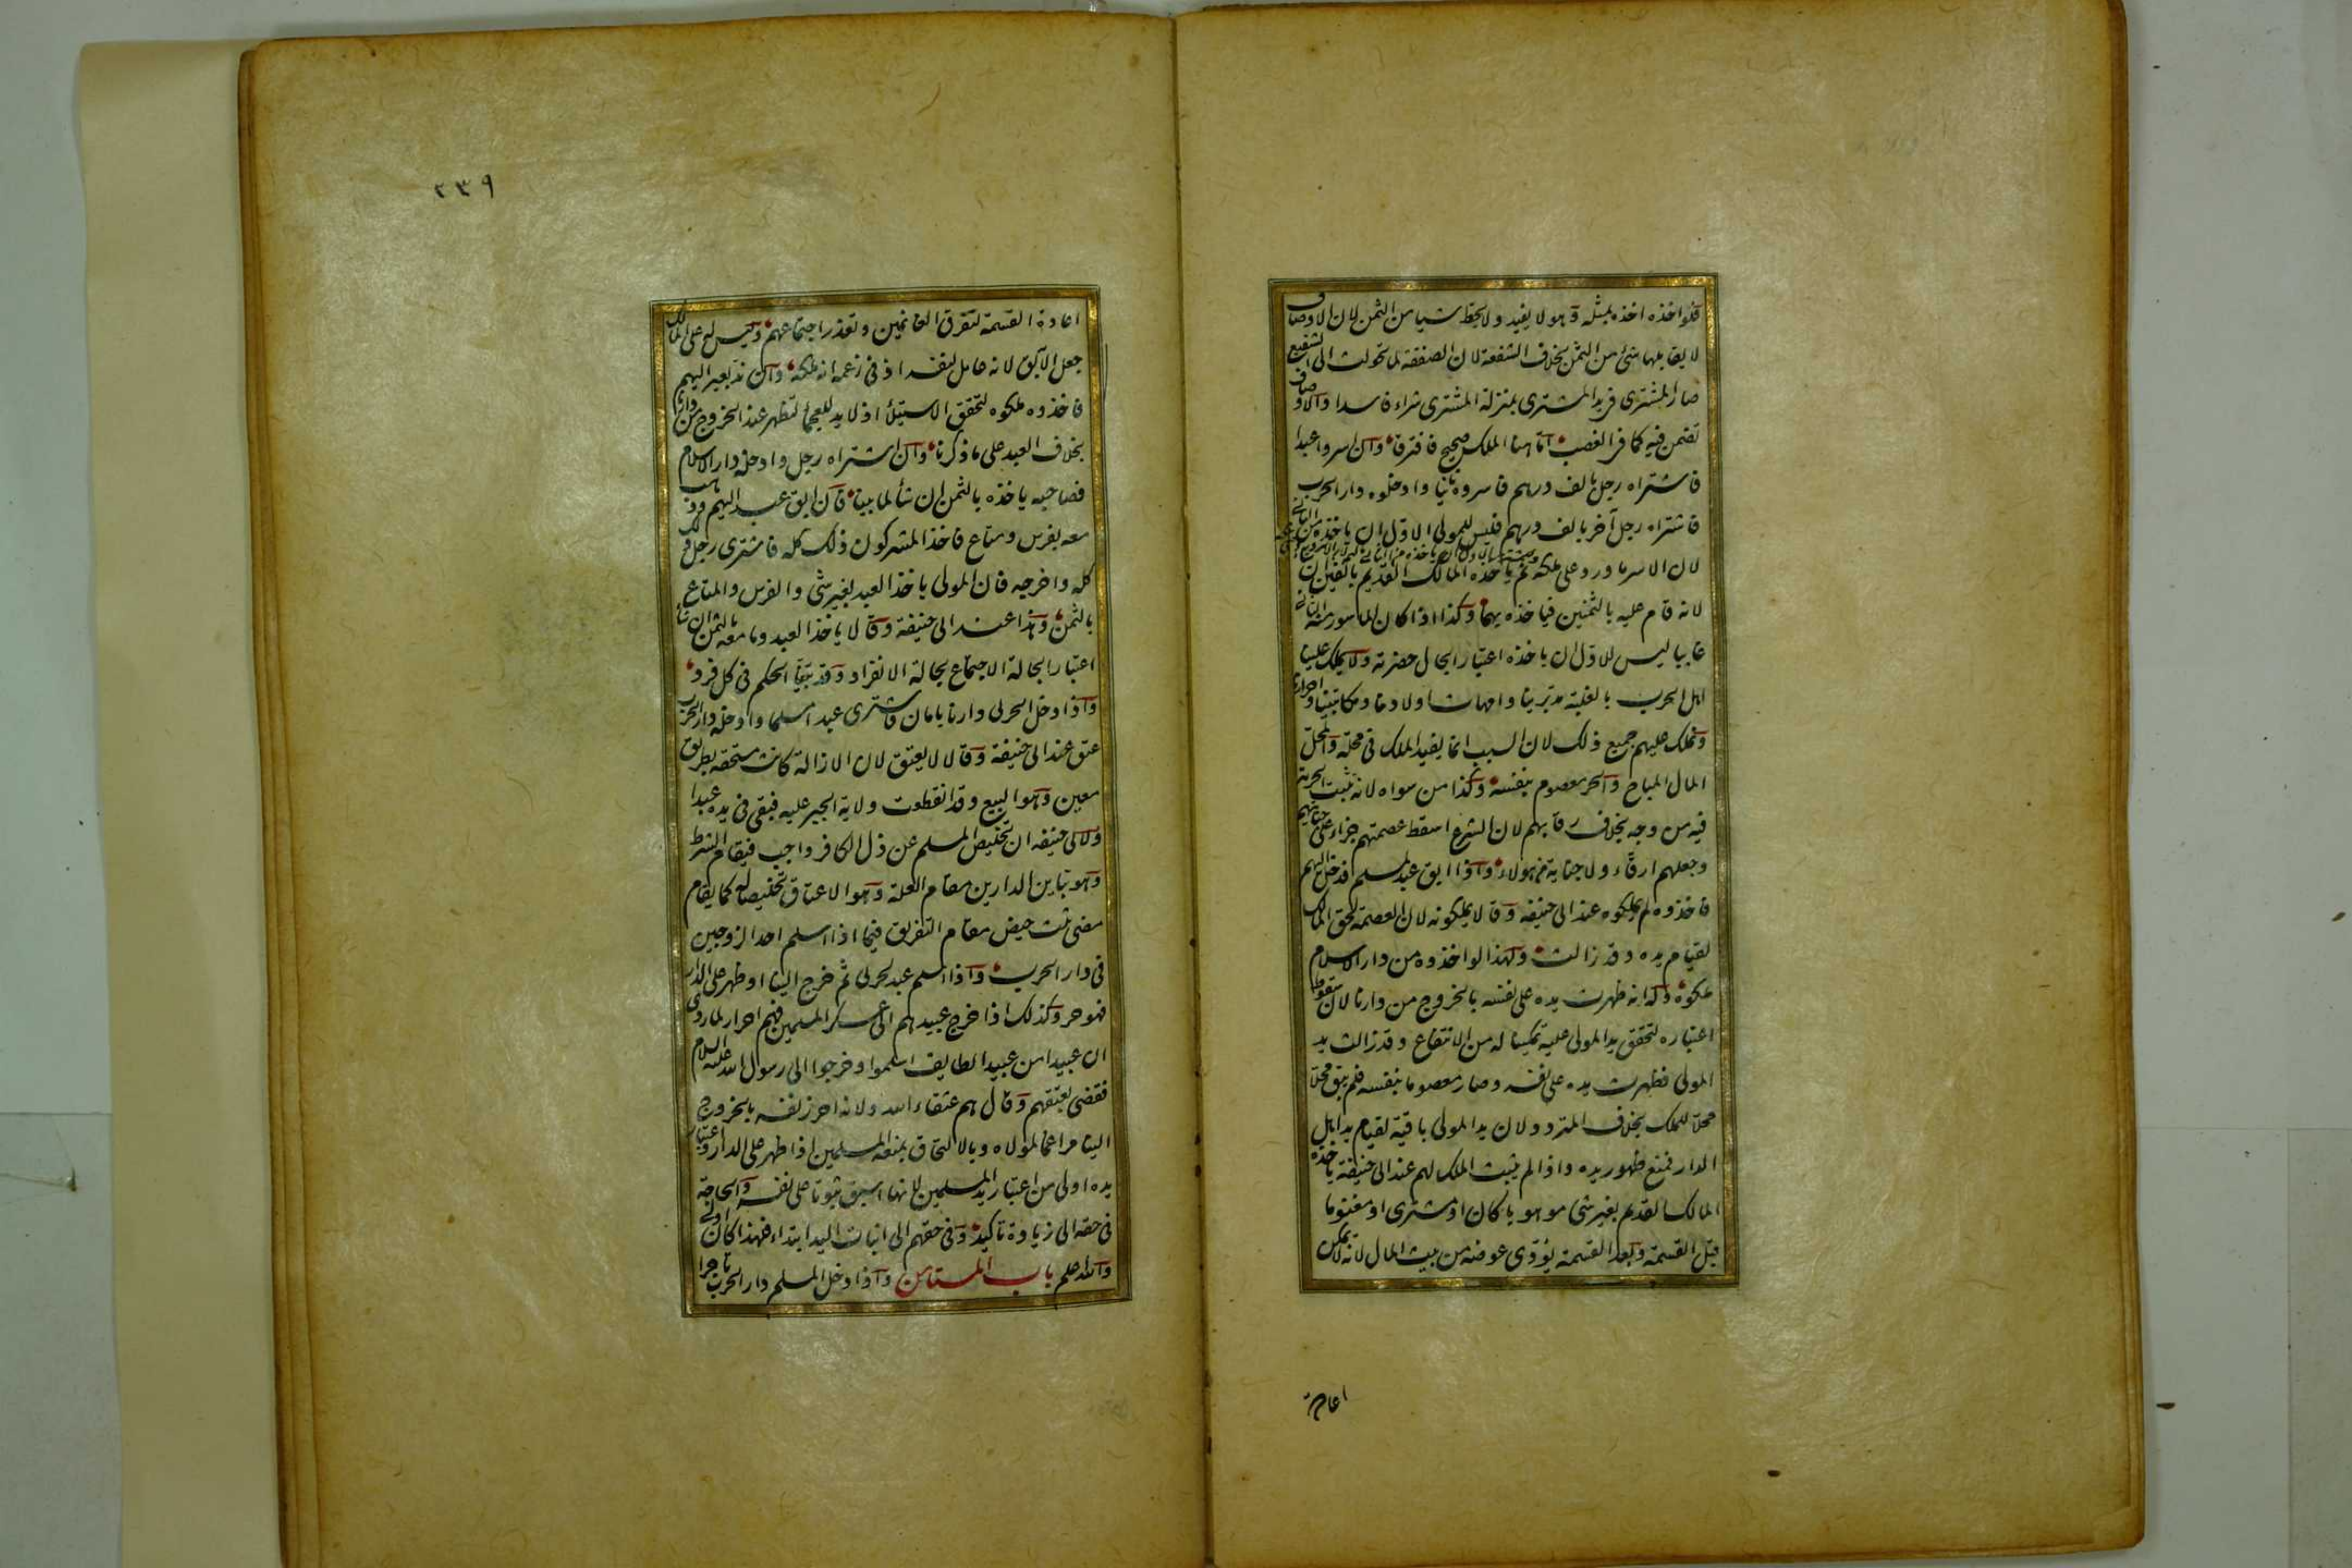 فلو اخذه اخذه بمثله وهو لا يفيد ولا يحط شيا من الثمن لان الاوصاف
لا يقابلها شئ من الثمن بخلاف الشفعة لان الصفقة لما تحولت الى الشفيع
صار المشترى فى يد المشترى بمنزلة المشترى شراء فاسدا والاوصاف
تضمن فيه كما فى الغصب اما هنا الملك صحيح فافترقا وان اسروا عبدا
فاشتراه رجل بالف درهم فاسروه ثانيا وادخلوه دار الحرب
فاشتراه رجل آخر بالف درهم فليس للمولى الاول ان ياخذه من الثانى
لان الاسر ما ورد على ملكه ثم ياخذه المالك القديم بالفين ان
لانه قام عليه بالثمنين فياخذه بهما وكذا اذا كان الماسور منه الثانى
غايبا ليس للاول ان ياخذه اعتبارا بحال حضرته ولا يملك علينا
اهل الحرب بالغلبة مدبرينا وامهات اولادنا ومكاتبينا واحرارنا
ونملك عليهم جميع ذلك لان السبب انما يفيد الملك فى محله والمحل
المال المباح والحر معصوم بنفسه وكذا من سواه لانه تثبت الحرية
فيه من وجه بخلاف رقابهم لان الشرع اسقط عصمتهم جزاء على جنايتهم
وجعلهم ارقاء ولا جناية من هولاء واذا ابق عبد لمسلم فدخل اليهم
فاخذوه لم يملكوه عند ابى حنيفه وقالا يملكونه لان العصمة لحق المالك
لقيام يده وقد زالت ولهذا لو اخذوه من دار الاسلام
ملكوه وله انه ظهرت يده على نفسه بالخروج من دارنا لان سقوط
اعتباره لتحقق يد المولى عليه تمكينا له من الانتفاع وقد زالت يد
المولى فظهرت يده على نفسه وصار معصوما بنفسه فلم يبق محلا
محلا للملك بخلاف المتردد لان يد المولى باقية لقيام يد اهل
الدار فمنع ظهور يده واذا لم يثبت الملك لهم عند ابى حنيفة ياخذه
المالك القديم بغير شئ موهوبا كان او مشترى او مغنوما
قبل القسمة وبعد القسمة يؤدى عوضه من بيت المال لانه لا يمكن
اعادة
٢٣٩
اعادة القسمة لتفرق الغانمين وتعذر اجتماعهم وليس له على المالك
جعل الآبق لانه عامل لنفسه اذ فى زعمه انه ملكه وان ند بعير اليهم
فاخذوه ملكوه لتحقق الاستيلاء اذ لا يد للعجماء لتظهر عند الخروج من دارنا
بخلاف العبد على ما ذكرنا وان اشتراه رجل وادخله دار الاسلام
فصاحبه ياخذه بالثمن ان شاء لما بينا فان ابق عبد اليهم وذهب
معه بفرس ومتاع فاخذ المشركون ذلك كله فاشترى رجل ذلك
كله واخرجه فان المولى ياخذ العبد بغير شئ والفرس والمتاع
بالثمن وهذا عند ابى حنيفة وقالا ياخذ العبد وما معه بالثمن ان شاء
اعتبارا لحالة الاجتماع بحالة الانفراد وقد بينا الحكم فى كل فرد
واذا دخل الحربى دارنا بامان فاشترى عبدا مسلما وادخله دار الحرب
عتق عند ابى حنيفة وقالا لا يعتق لان الازالة كانت مستحقه بطريق
معين وهو البيع وقد انقطعت ولاية الجبر عليه فبقى فى يده عبدا
ولابى حنيفه ان تخليص المسلم عن ذل الكافر واجب فيقام الشرط
وهو تباين الدارين مقام العلة وهو الاعتاق تخليصا له كما يقام
مضى ثلث حيض مقام التفريق فيما اذا اسلم احد الزوجين
فى دار الحرب واذا اسلم عبد لحربى ثم خرج الينا او ظهر على الدار
فهو حر وكذلك اذا خرج عبيدهم الى عسكر المسلمين فهم احرار لما روى
ان عبيدا من عبيد الطايف اسلموا وخرجوا الى رسول الله عليه السلام
فقضى بعتقهم وقال هم عتقاء الله ولانه احرز نفسه بالخروج
الينا مراغما لمولاه وبالالتحاق بمنعة المسلمين اذا ظهر على الدار واعتبار
يده اولى من اعتبار يد المسلمين لانها اسبق ثبوتا على نفسه والحاجة
فى حقه الى زيادة تاكيد وفى حقهم الى اثبات اليد ابتداء فهذا كان اولى
والله اعلم باب المستامن واذا دخل المسلم دار الحرب تاجرا